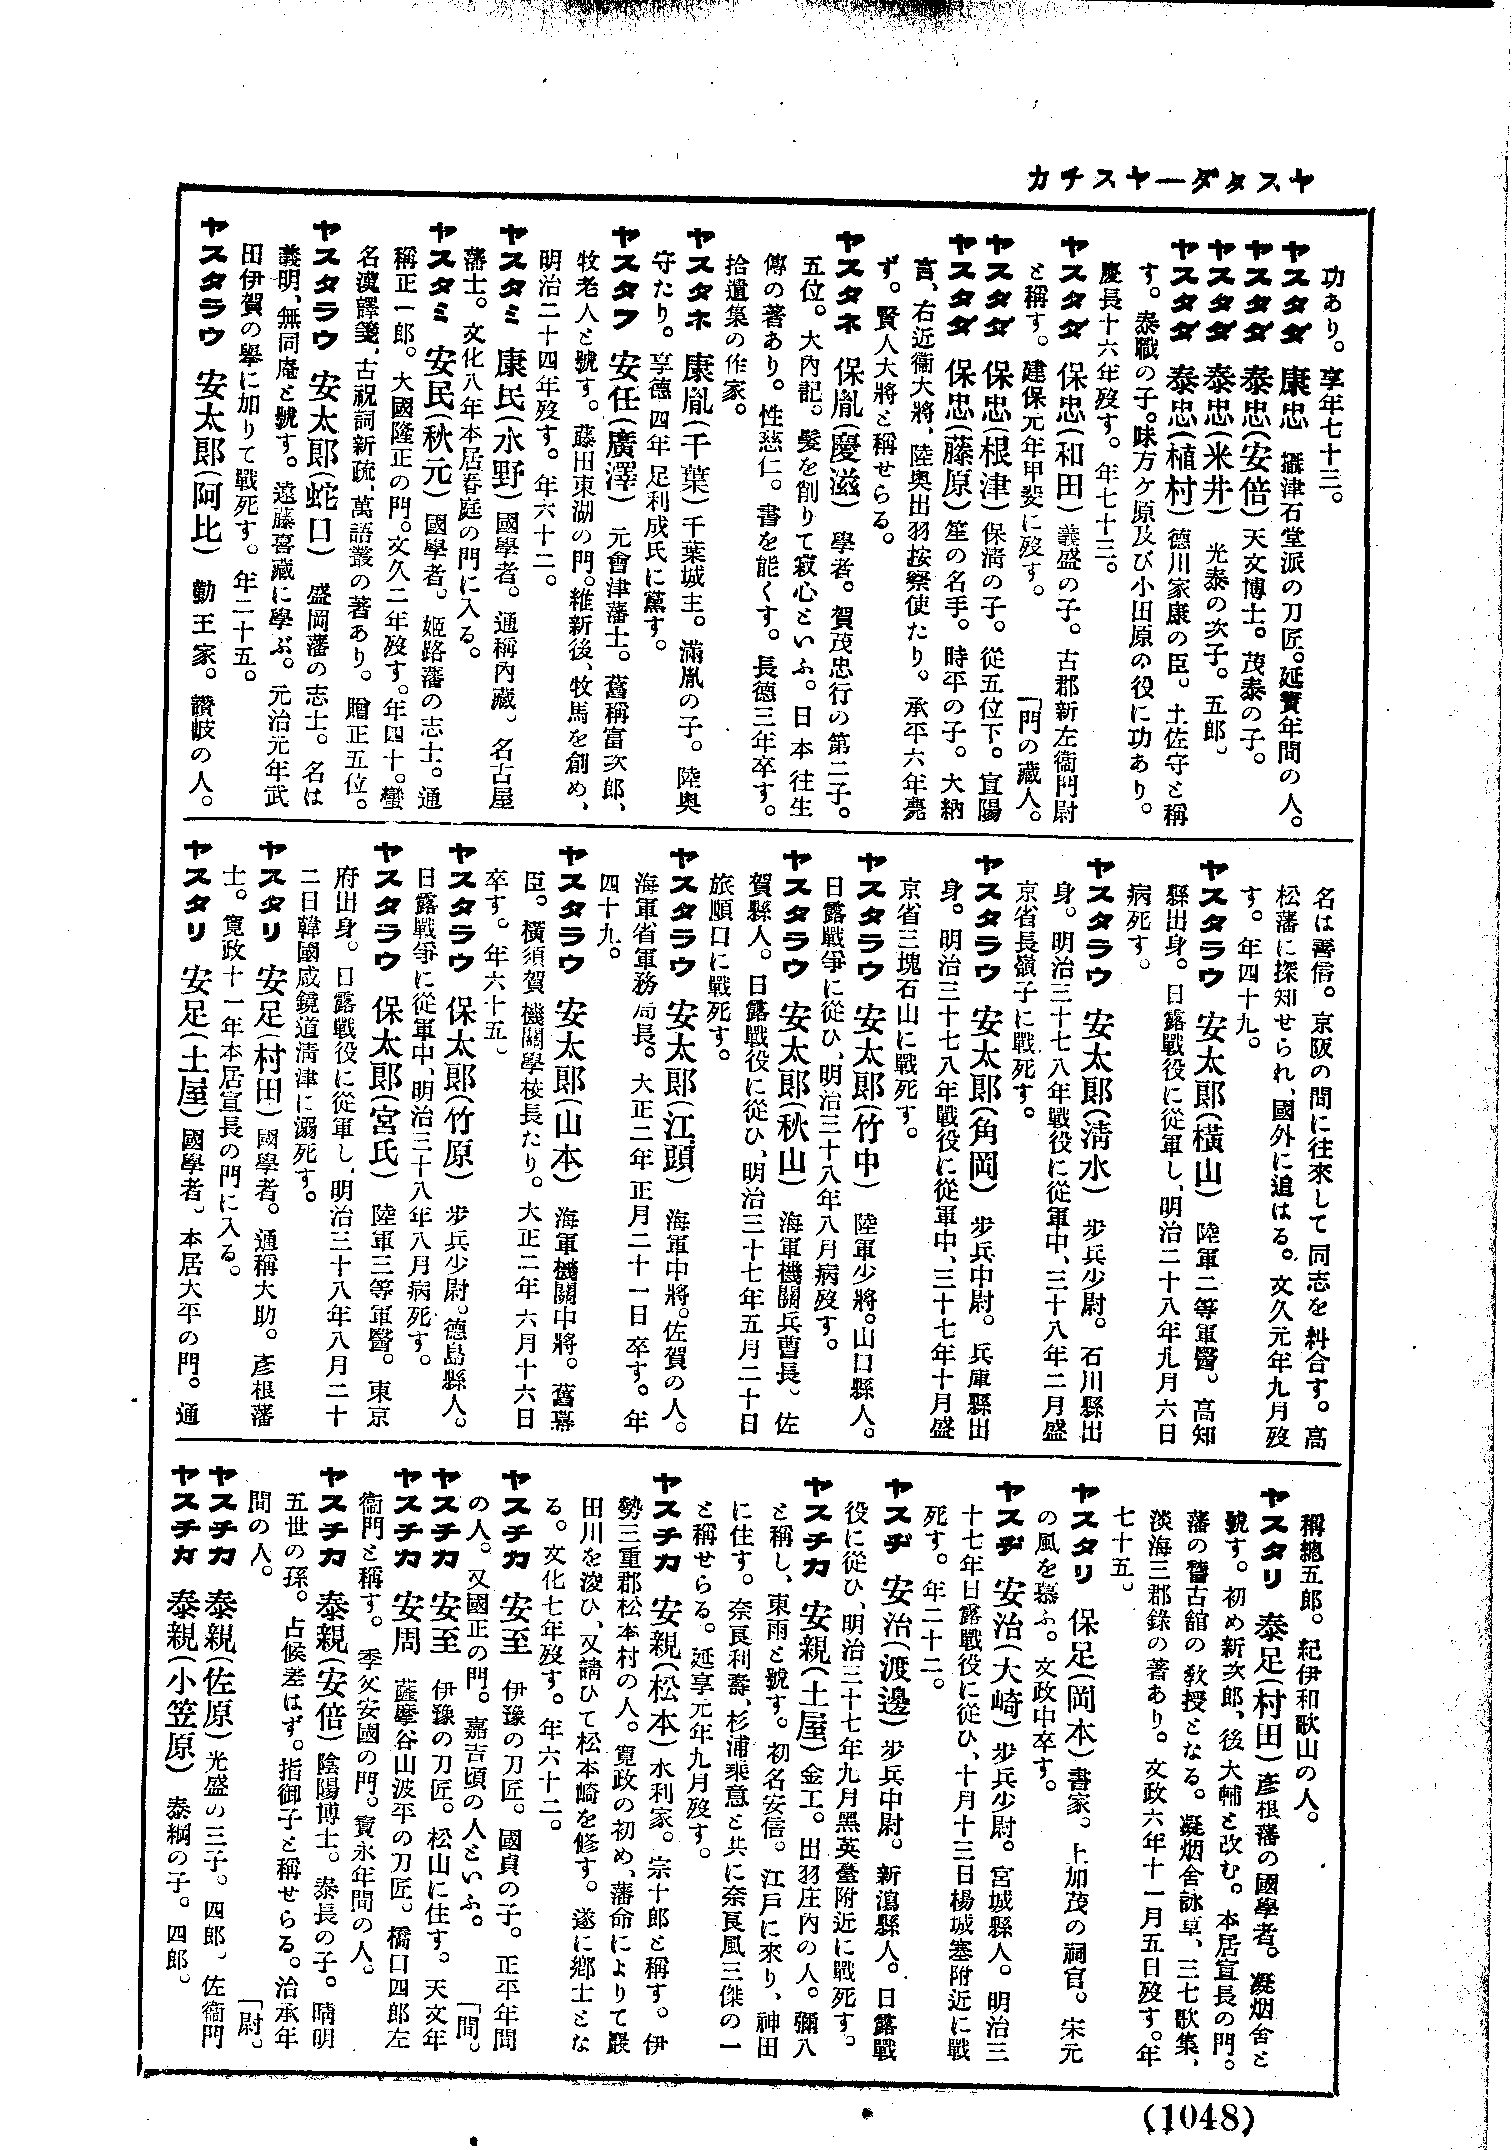 ヤスタダーヤスチカ
功あり。享年七十三。
ヤスタダ 康忠 攝津石堂派の刀匠。延寶年間の人。
ヤスタダ 泰忠(安倍)天文博士。茂泰の子。
ヤスタダ 泰忠(米井) 光泰の次子。五郎。
ヤスタダ 泰忠(植村)德川家康の臣。土佐守と稱
す。泰職の子。味方ケ原及び小田原の役に功あり。
慶長十六年歿す。年七十三。
ヤスタダ 保忠(和田)義盛の子。古郡新左衞門尉
と稱す。建保元年甲斐に歿す。 「門の藏人。
ヤスタダ 保忠(根津)保淸の子。從五位下。宜陽
ヤスタダ 保忠(藤原)笙の名手。時平の子。大納
言、右近衞大將、陸奧出羽按察使たり。承平六年薨
ず。賢人大將と稱せらる。
ヤスタネ 保胤(慶滋) 學者。賀茂忠行の第二子。
五位。大內記。髮を削りて寂心といふ。日本往生
傳の著あり。性慈仁。書を能くす。長德三年卒す。
拾遺集の作家。
ヤスタネ 康胤(千葉)千葉城主。滿胤の子。陸奧
守たり。享德四年足利成氏に黨す。
ヤスタフ 安任(廣澤) 元會津藩士。舊稱富次郎、
牧老人と號す。藤田東湖の門。維新後、牧馬を創め、
明治二十四年歿す。年六十二。
ヤスタミ 康民(水野)國學者。通稱內藏。名古屋
藩士。文化八年本居春庭の門に入る。
ヤスタミ 安民(秋元)國學者。姬路藩の志士。通
稱正一郎。大國隆正の門。文久二年歿す。年四十。蠻
名漢譯箋、古祝詞新疏、萬語叢の著あり。贈正五位。
ヤスタラウ 安太郎(蛇口) 盛岡藩の志士。名は
義明、無同庵と號す。遠藤喜藏に學ぶ。元治元年武
田伊賀の擧に加りて戰死す。年二十五。
ヤスタラウ 安太郎(阿比) 勤王家。讚岐の人。
名は善信。京阪の間に往來して同志を糾合す。高
松藩に探知せられ、國外に追はる。文久元年九月歿
す。年四十九。
ヤスタラウ 安太郎(橫山) 陸軍二等軍醫。高知
縣出身。日露戰役に從軍し、明治二十八年九月六日
病死す。
ヤスタラウ 安太郎(淸水) 步兵少尉。石川縣出
身。明治三十七八年戰役に從軍中、三十八年二月盛
京省長嶺子に戰死す。
ヤスタラウ 安太郎(角岡) 步兵中尉。兵庫縣出
身。明治三十七八年戰役に從軍中、三十七年十月盛
京省三塊石山に戰死す。
ヤスタラウ 安太郎(竹中) 陸軍少將。山口縣人。
日露戰爭に從ひ、明治三十八年八月病歿す。
ヤスタラウ 安太郎(秋山) 海軍機關兵曹長。佐
賀縣人。日露戰役に從ひ、明治三十七年五月二十日
旅順口に戰死す。
ヤスタラウ 安太郎(江頭) 海軍中將。佐賀の人。
海軍省軍務局長。大正二年正月二十一日卒す。年
四十九。
ヤスタラウ 安太郎(山本) 海軍機關中將。舊幕
臣。橫須賀機關學校長たり。大正二年六月十六日
卒す。年六十五。
ヤスタラウ 保太郎(竹原) 步兵少尉。德島縣人。
日露戰爭に從軍中、明治三十八年八月病死す。
ヤスタラウ 保太郎(宮氏) 陸軍三等軍醫。東京
府出身。日露戰役に從軍し、明治三十八年八月二十
二日韓國咸鏡道淸津に溺死す。
ヤスタリ 安足(村田)國學者。通稱大助。彥根藩
士。寬政十一年本居宣長の門に入る。
ヤスタリ 安足(土屋)國學者。本居大平の門。通
稱總五郎。紀伊和歌山の人。
ヤスタリ 泰足(村田)彥根藩の國學者。凝烟舍と
號す。初め新次郎、後大輔と改む。本居宣長の門。
藩の醫古舘の敎授となる。凝烟舍詠草、三七歌集、
淡海三郡錄の著あり。文政六年十一月五日歿す。年
七十五。
ヤスタリ 保足(岡本)書家。上加茂の祠官。宋元
の風を慕ふ。文政中卒す。
ヤスヂ 安治(大崎)步兵少尉。宮城縣人。明治三
十七年日露戰役に從ひ、十月十三日楊城塞附近に戰
死す。年二十二。
ヤスヂ 安治(渡邊)步兵中尉。新瀉縣人。日露戰
役に從ひ、明治三十七年九月黑英臺附近に戰死す。
ヤスチカ 安親(土屋)金工。出羽庄內の人。彌八
と稱し、東雨と號す。初名安信。江戶に來り、神田
に住す。奈良利壽、杉浦乘意と共に奈良風三傑の一
と稱せらる。延享元年九月歿す。
ヤスチカ 安親(松本)水利家。宗十郎と稱す。伊
勢三重郡松本村の人。寬政の初め、藩命によりて嚴
田川を浚ひ、又請ひて松本崎を修す。遂に鄉士とな
る。文化七年歿す。年六十二。
ヤスチカ 安至 伊豫の刀匠。國貞の子。正平年間
の人。又國正の門。嘉吉頃の人といふ。 「間。
ヤスチカ 安至 伊豫の刀匠。松山に住す。天文年
ヤスチカ 安周 薩摩谷山波平の刀匠。橋口四郎左
衞門と稱す。季父安國の門。寶永年間の人。
ヤスチカ 泰親(安倍)陰陽博士。泰長の子。晴明
五世の孫。占候差はず。指御子と稱せらる。治承年
間の人。 「尉。
ヤスチカ 泰親(佐原)光盛の三子。四郎、佐衞門
ヤスチカ 泰親(小笠原) 泰綱の子。四郎。
(1048)